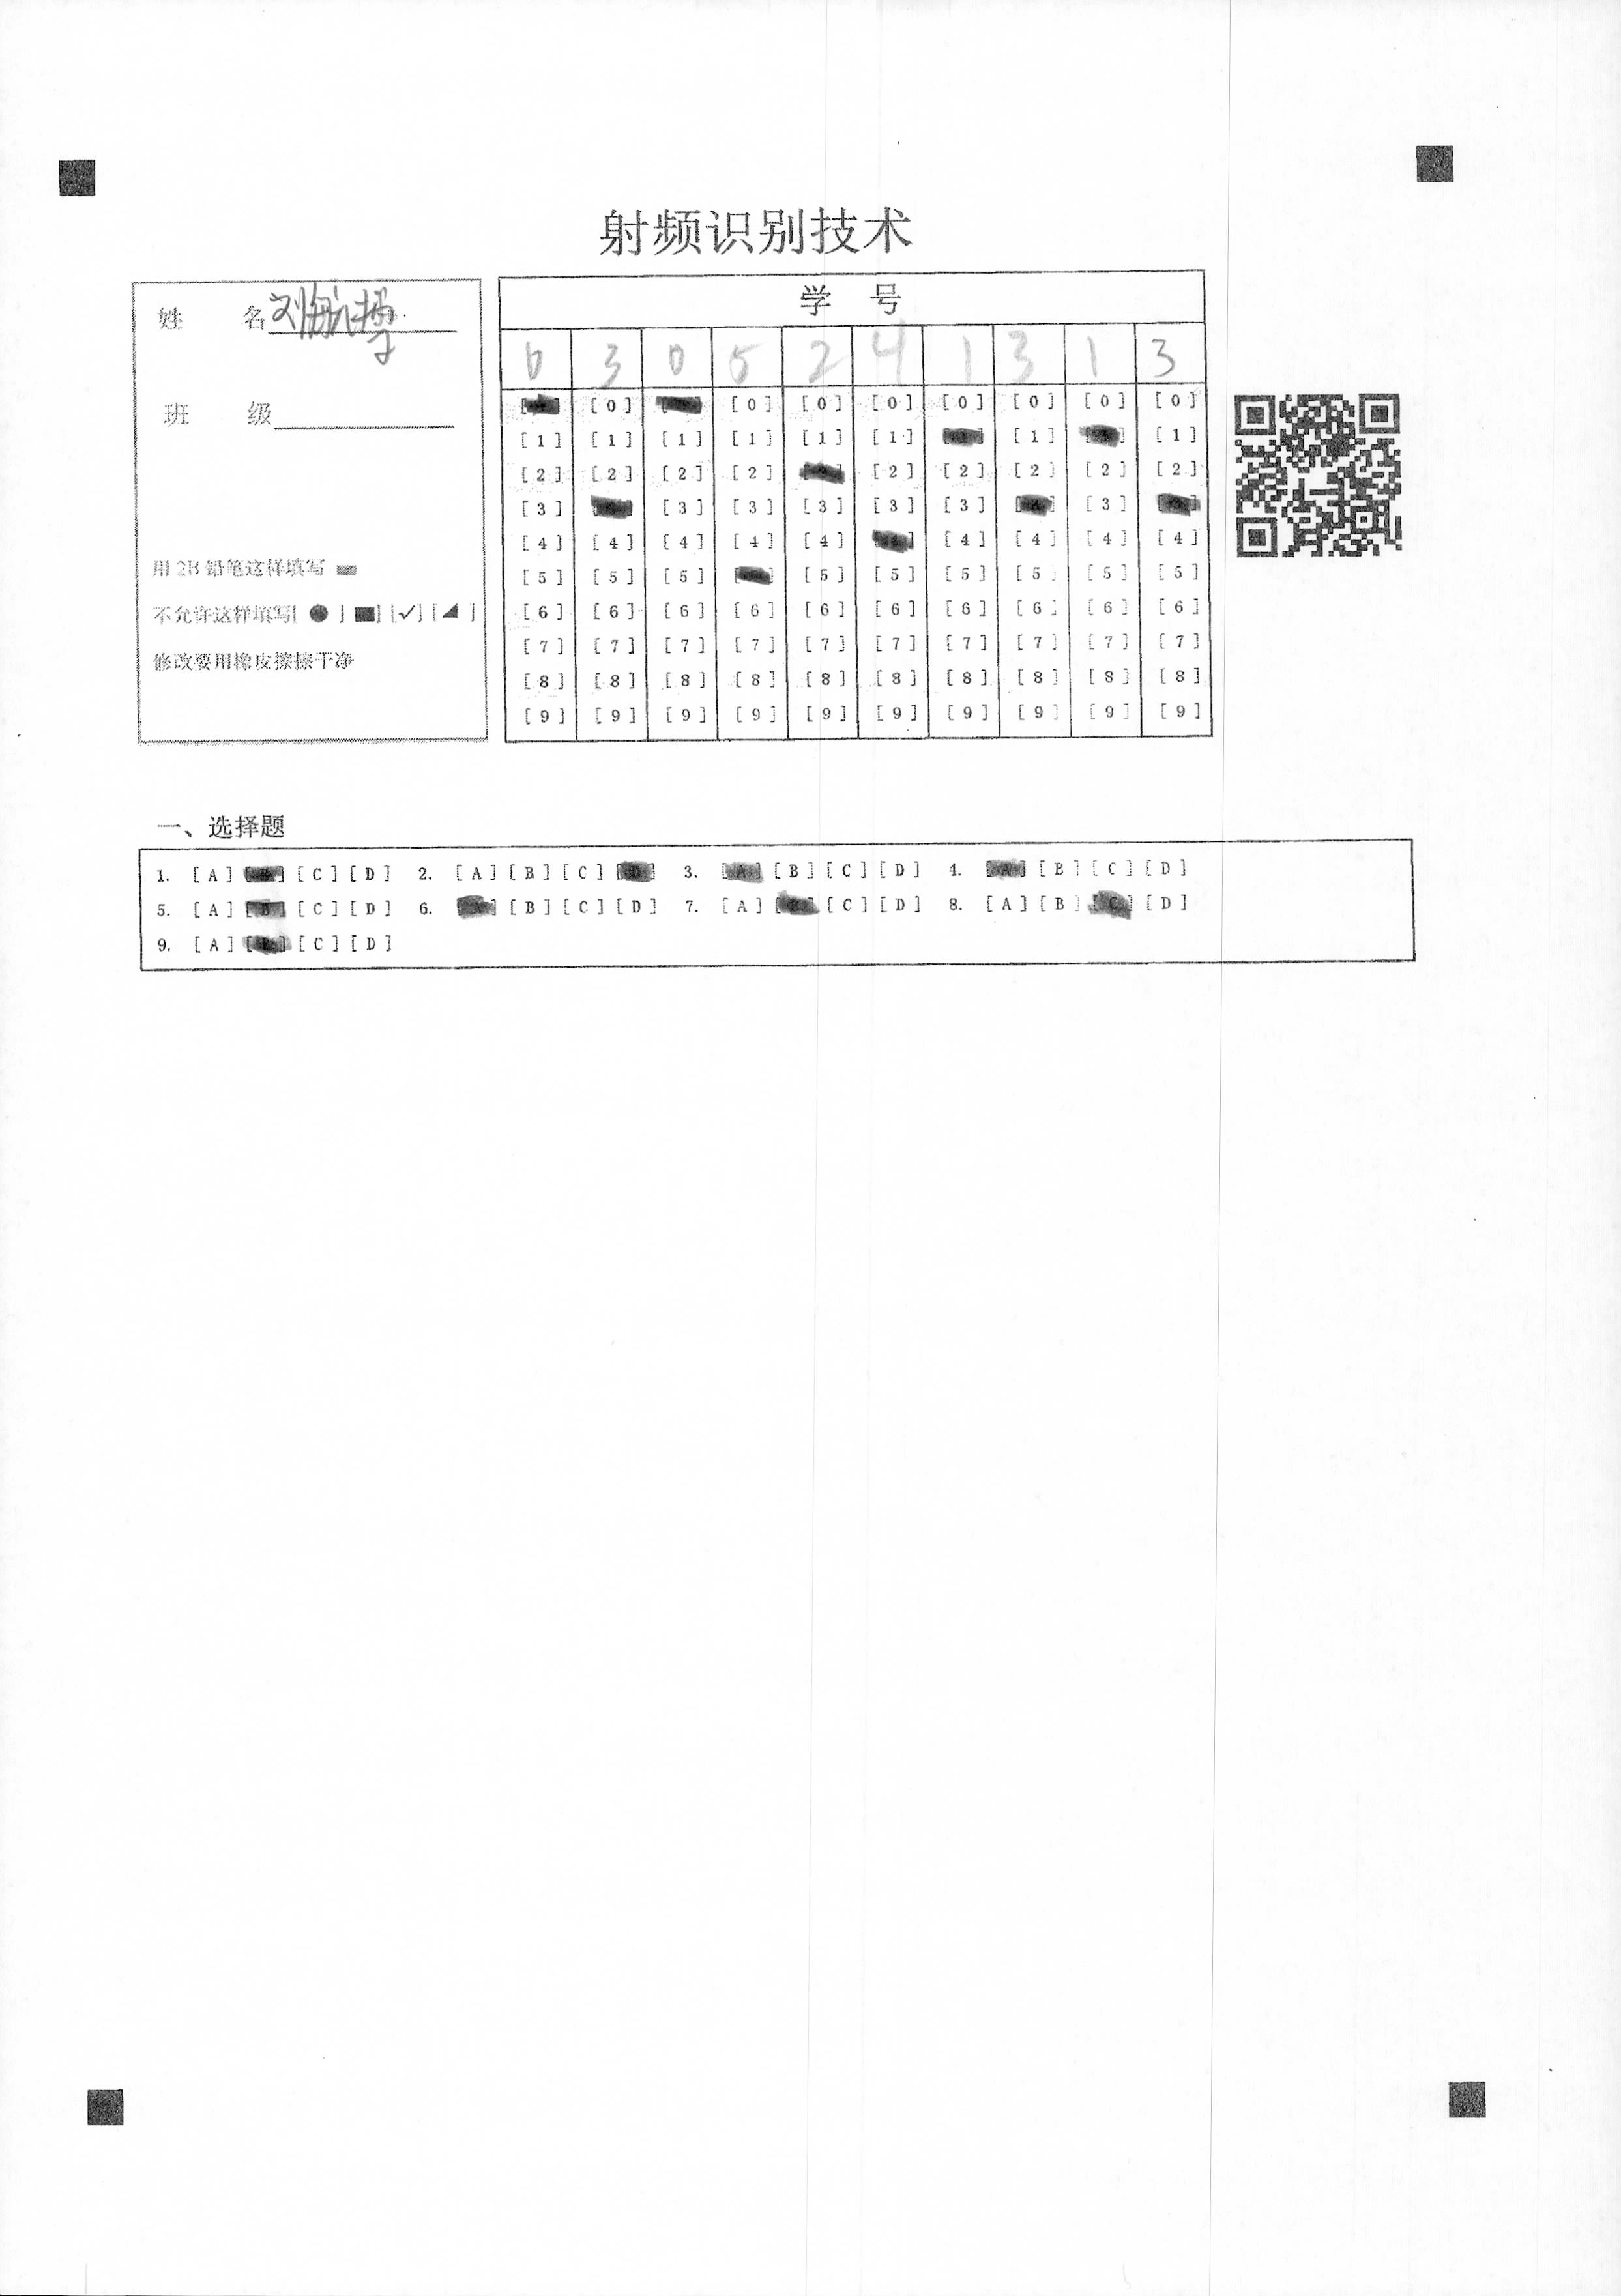 射频识别技术
姓 名 刘航博
班 级
用 2B 铅笔这样填写
不允许这样填写[ ● ] [■] [✓] [◢ ]
修改要用橡皮擦擦干净
学 号
0 3 0 5 2 4 1 3 1 3
[0] [0] [0] [0] [0] [0] [0] [0]
[1] [1] [1] [1] [1] [1] [1] [1]
[2] [2] [2] [2] [2] [2] [2] [2] [2]
[3] [3] [3] [3] [3] [3] [3]
[4] [4] [4] [4] [4] [4] [4] [4] [4]
[5] [5] [5] [5] [5] [5] [5] [5] [5]
[6] [6] [6] [6] [6] [6] [6] [6] [6] [6]
[7] [7] [7] [7] [7] [7] [7] [7] [7] [7]
[8] [8] [8] [8] [8] [8] [8] [8] [8] [8]
[9] [9] [9] [9] [9] [9] [9] [9] [9] [9]
一、选择题
1. [A] [B] [C] [D] 2. [A] [B] [C] [D] 3. [A] [B] [C] [D] 4. [A] [B] [C] [D]
5. [A] [B] [C] [D] 6. [A] [B] [C] [D] 7. [A] [B] [C] [D] 8. [A] [B] [C] [D]
9. [A] [B] [C] [D]